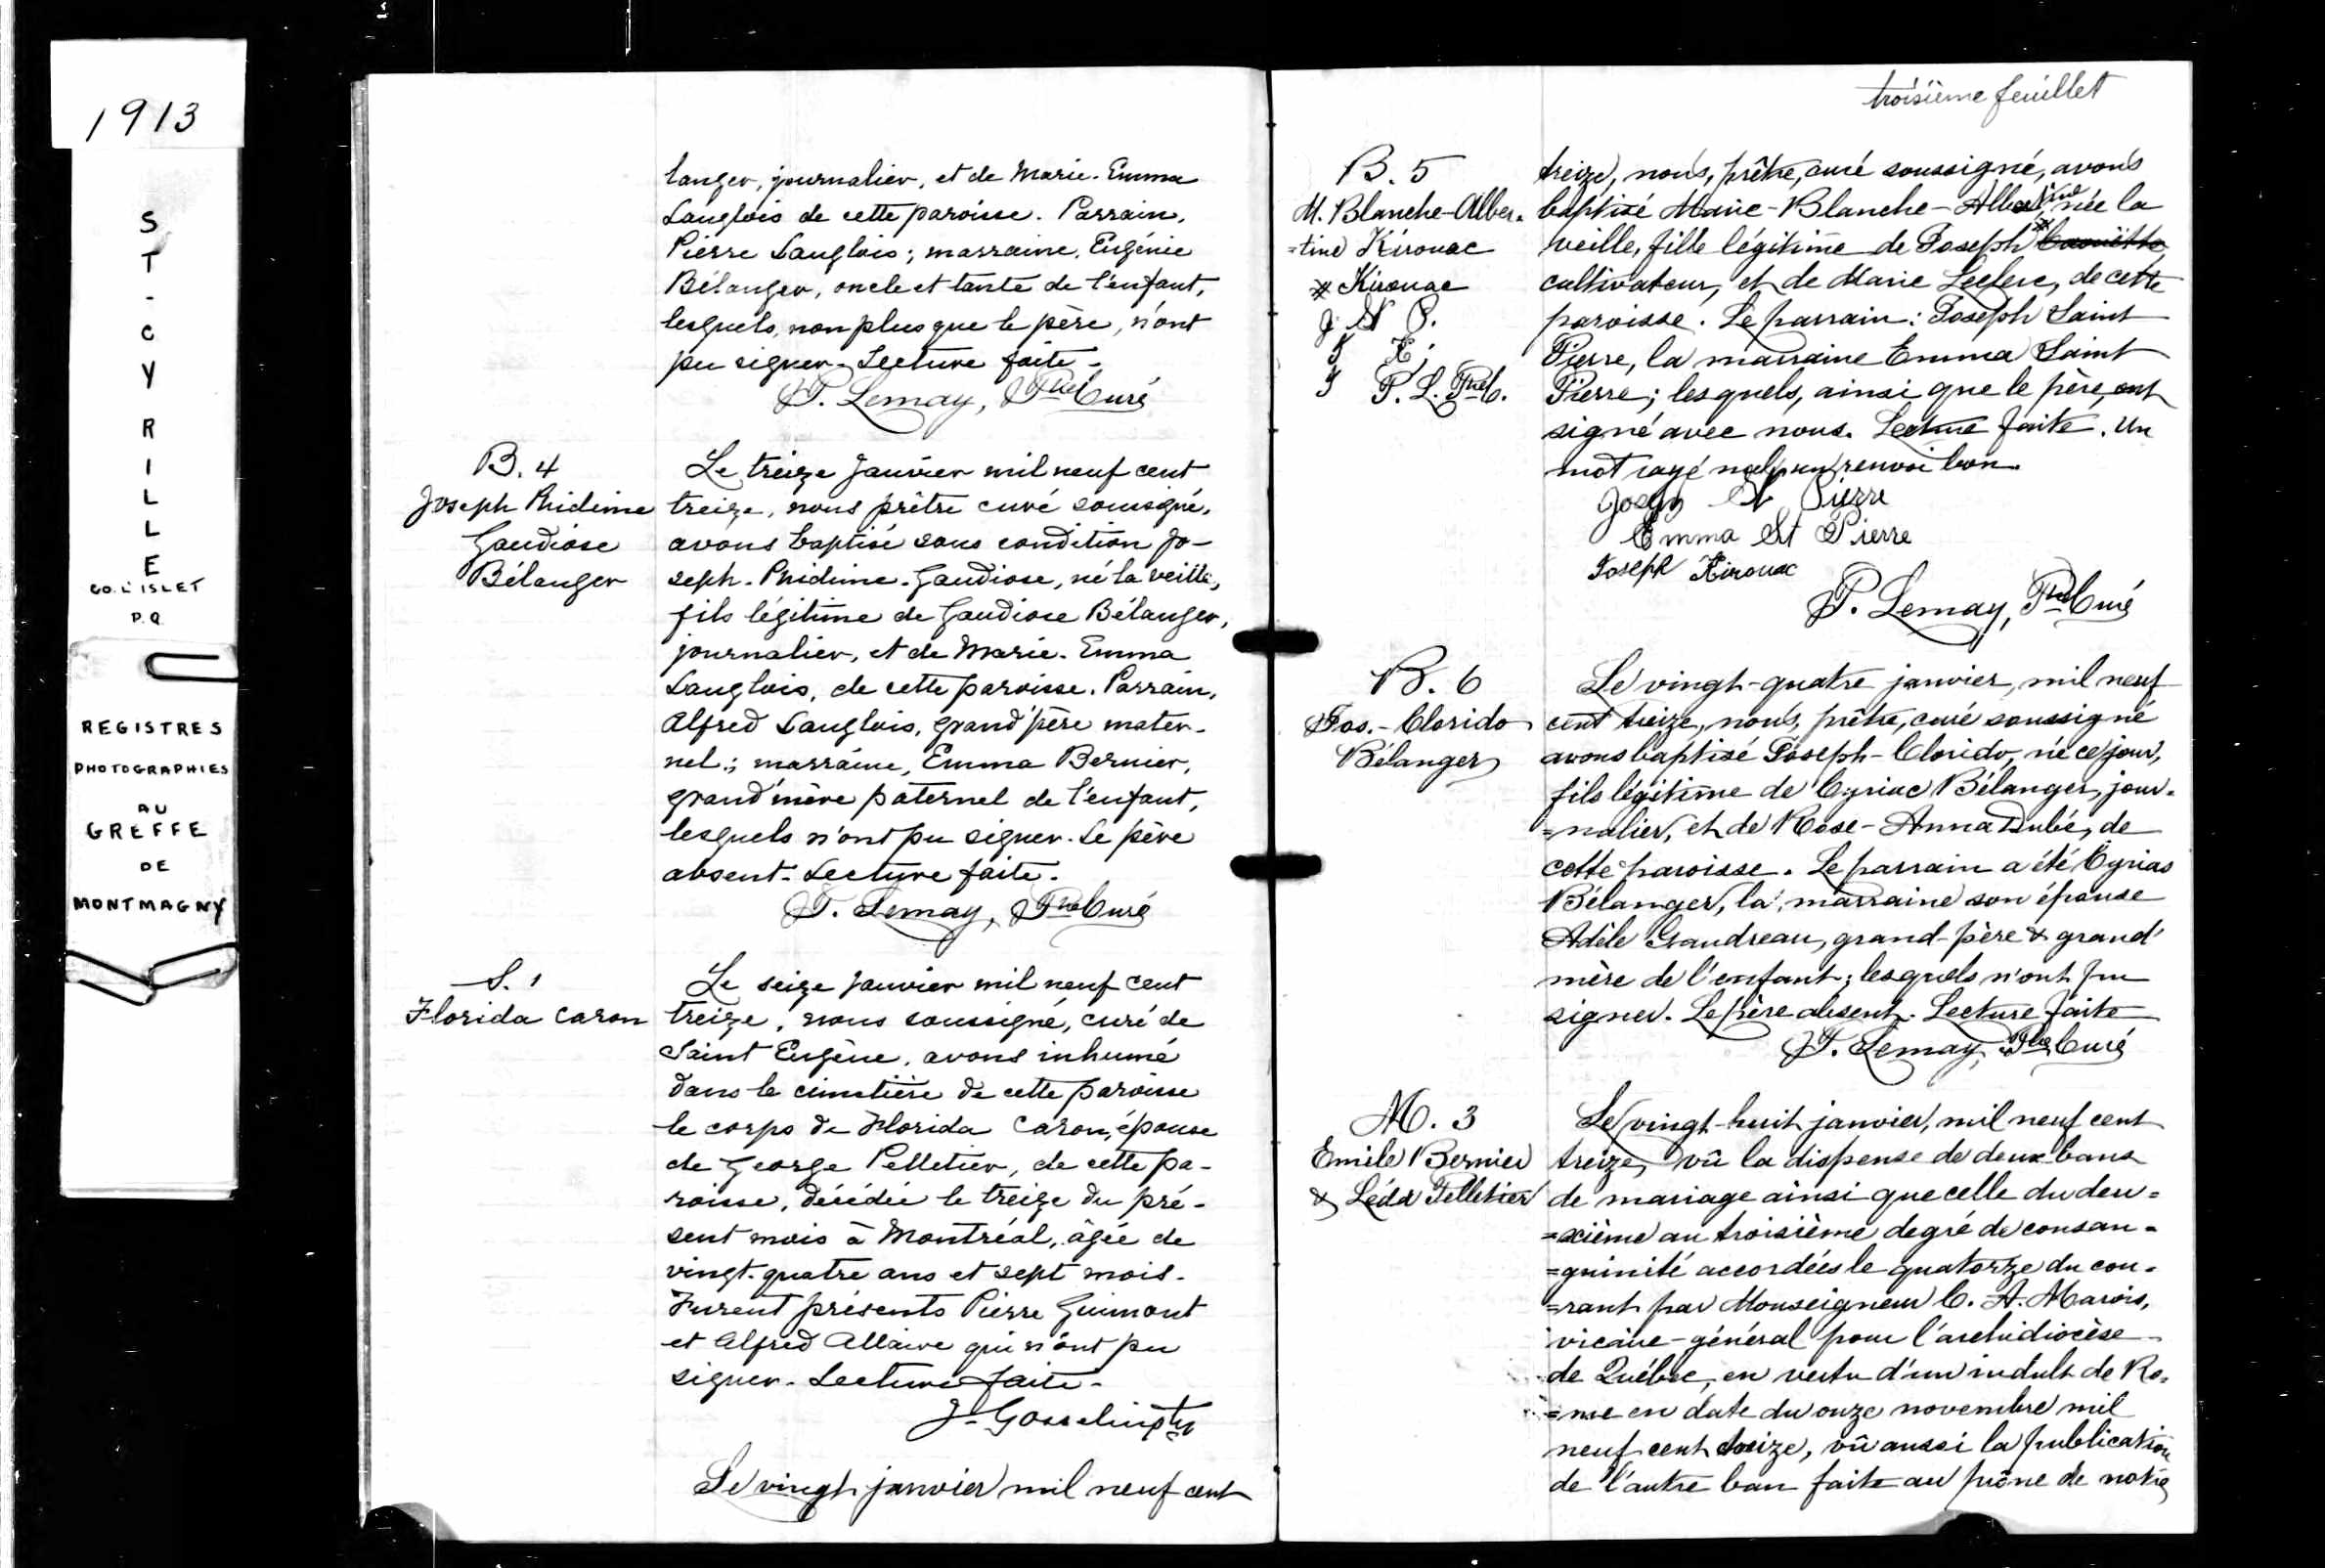 1913
ST-CYRILLE
CO. L'ISLET
P.Q.
REGISTRES
PHOTOGRAPHIES
AU
GREFFE
DE
MONTMAGNY
langer, journalier, et de Marie-Emma
Langlois de cette paroisse. Parrain,
Pierre Langlois; marraine, Eugénie
Bélanger, oncle et tante de l'enfant,
lesquels, non plus que le père, n'ont
pu signer. Lecture faite.
P. Lemay, Ptre Curé
B. 4
Joseph Phidime
Gaudiose
Bélanger
Le treize janvier mil neuf cent
treize, nous prêtre curé soussigné,
avons baptisé sous condition Jo-
seph-Phidime-Gaudiose, né la veille,
fils légitime de Gaudiose Bélanger,
journalier, et de Marie-Emma
Langlois, de cette paroisse. Parrain,
Alfred Langlois, grand'père mater-
nel; marraine, Emma Bernier,
grand'mère paternel de l'enfant,
lesquels n'ont pu signer. Le père
absent. Lecture faite.
P. Lemay, Ptre Curé
S. 1
Florida Caron
Le seize janvier mil neuf cent
treize, nous soussigné, curé de
Saint Eugène, avons inhumé
dans le cimetière de cette paroisse
le corps de Florida Caron, épouse
de George Pelletier, de cette pa-
roisse, décédée le treize du pré-
sent mois à Montréal, âgée de
vingt-quatre ans et sept mois.
Furent présents Pierre Guimont
et Alfred Allaire qui n'ont pu
signer. Lecture faite.
J. Gosselin ptr
Le vingt janvier mil neuf cent
troisième feuillet
B. 5
M. Blanche-Alber-
=tine Kirouac
# Kirouac
J. St P.
J K;
J P. L. Ptre C.
treize, nous, prêtre, curé soussigné, avons
baptisé Marie-Blanche-Albertine née la
veille, fille légitime de Joseph #
cultivateur, et de Marie Leclerc, de cette
paroisse. Le parrain: Joseph Saint
Pierre, la marraine Emma Saint
Pierre; lesquels, ainsi que le père, ont
signé avec nous. Lecture faite. Un
mot rayé nul, un renvoi bon.
Joseph St Pierre
Emma St Pierre
Joseph Kirouac
P. Lemay, Ptre Curé
B. 6
Jos.-Clorido
Bélanger
Le vingt-quatre janvier, mil neuf
cent treize, nous, prêtre, curé soussigné
avons baptisé Joseph-Clorido, né ce jour,
fils légitime de Cyriac Bélanger, jour-
=nalier, et de Rose-Anna Dubé, de
cette paroisse. Le parrain a été Cyrias
Bélanger, la marraine son épouse
Adèle Gaudreau, grand-père & grand'
mère de l'enfant; lesquels n'ont pu
signer. Le père absent. Lecture faite
P. Lemay, Ptre Curé
M. 3
Emile Bernier
& Léda Pelletier
Le vingt-huit janvier, mil neuf cent
treize, vû la dispense de deux bans
de mariage ainsi que celle du deu=
=xième au troisième degré de consan-
=guinité accordées le quatorze du cou-
=rant par Monseigneur C. A. Marois,
vicaire-général pour l'archidiocèse
de Québec, en vertu d'un indult de Ro-
=me en date du onze novembre mil
neuf cent treize, vû aussi la publication
de l'autre ban faite au prône de notre